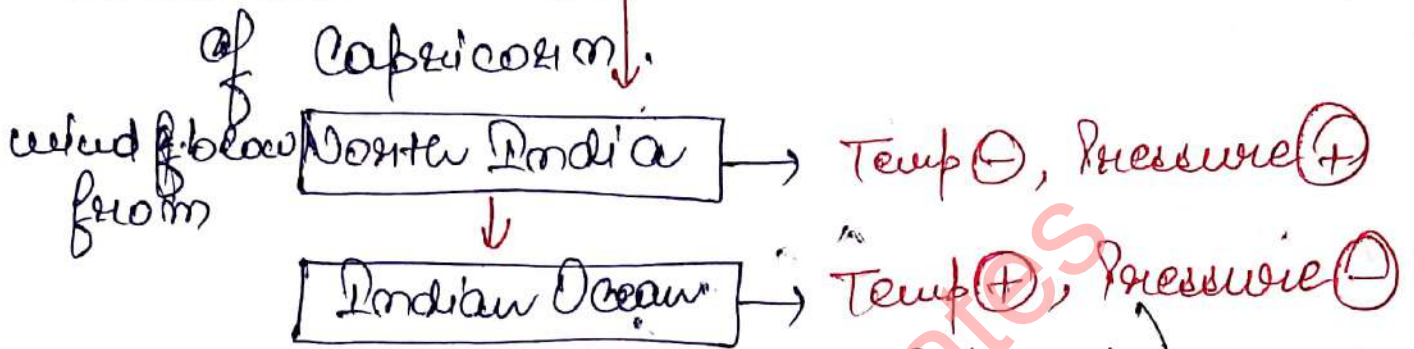 of Capricorn.
wind blow North India → Temp ⊖, Pressure ⊕
from
Indian Ocean → Temp ⊕, Pressure ⊖
notes